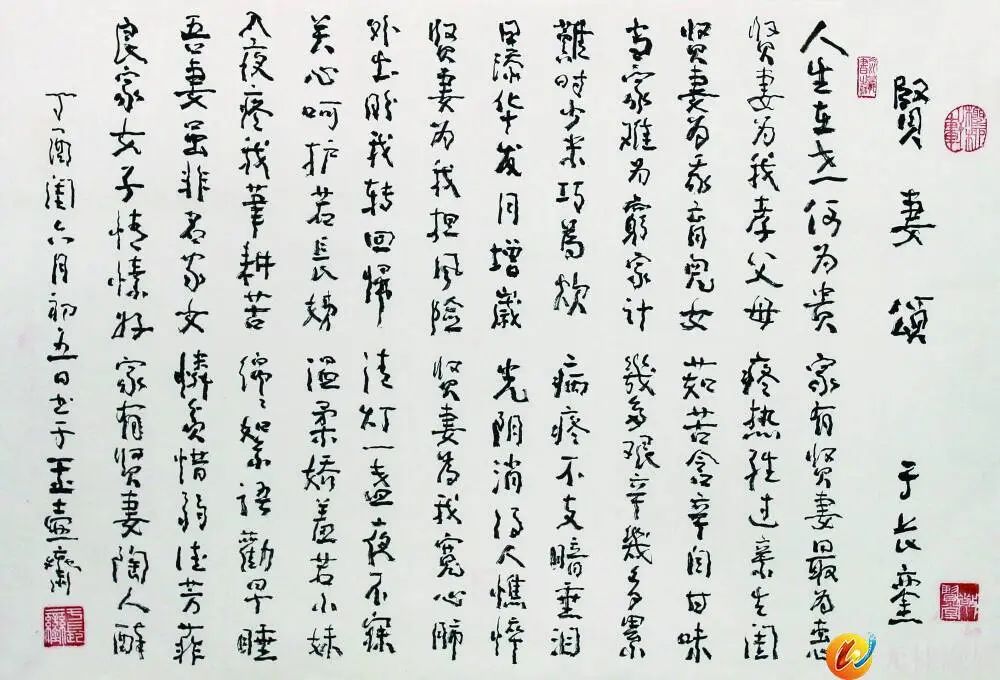 賢妻頌 于长銮
人生在世何为贵 家有贤妻最为
贤妻为我孝父母 疼热胜过亲生闺
贤妻为我育兒女 茹苦含辛自甘味
当家难为窮家计 幾多艰辛幾多累
難时少米巧為炊 病疼不支暗垂泪
日添华发月增歲 光阴消得人憔悴
贤妻为我担风险 贤妻為我寬心肺
外出盼我转回归 清灯一盏夜不寐
关心呵护若长姊 温柔娇羞若小妹
入夜疼我笔耕苦 绵绵絮语勸早睡
吾妻虽非名家女 憐贫惜弱德芳菲
良家女子情愫好 家有贤妻陶人醉
丁酉闰六月初五日书于玉壶斋